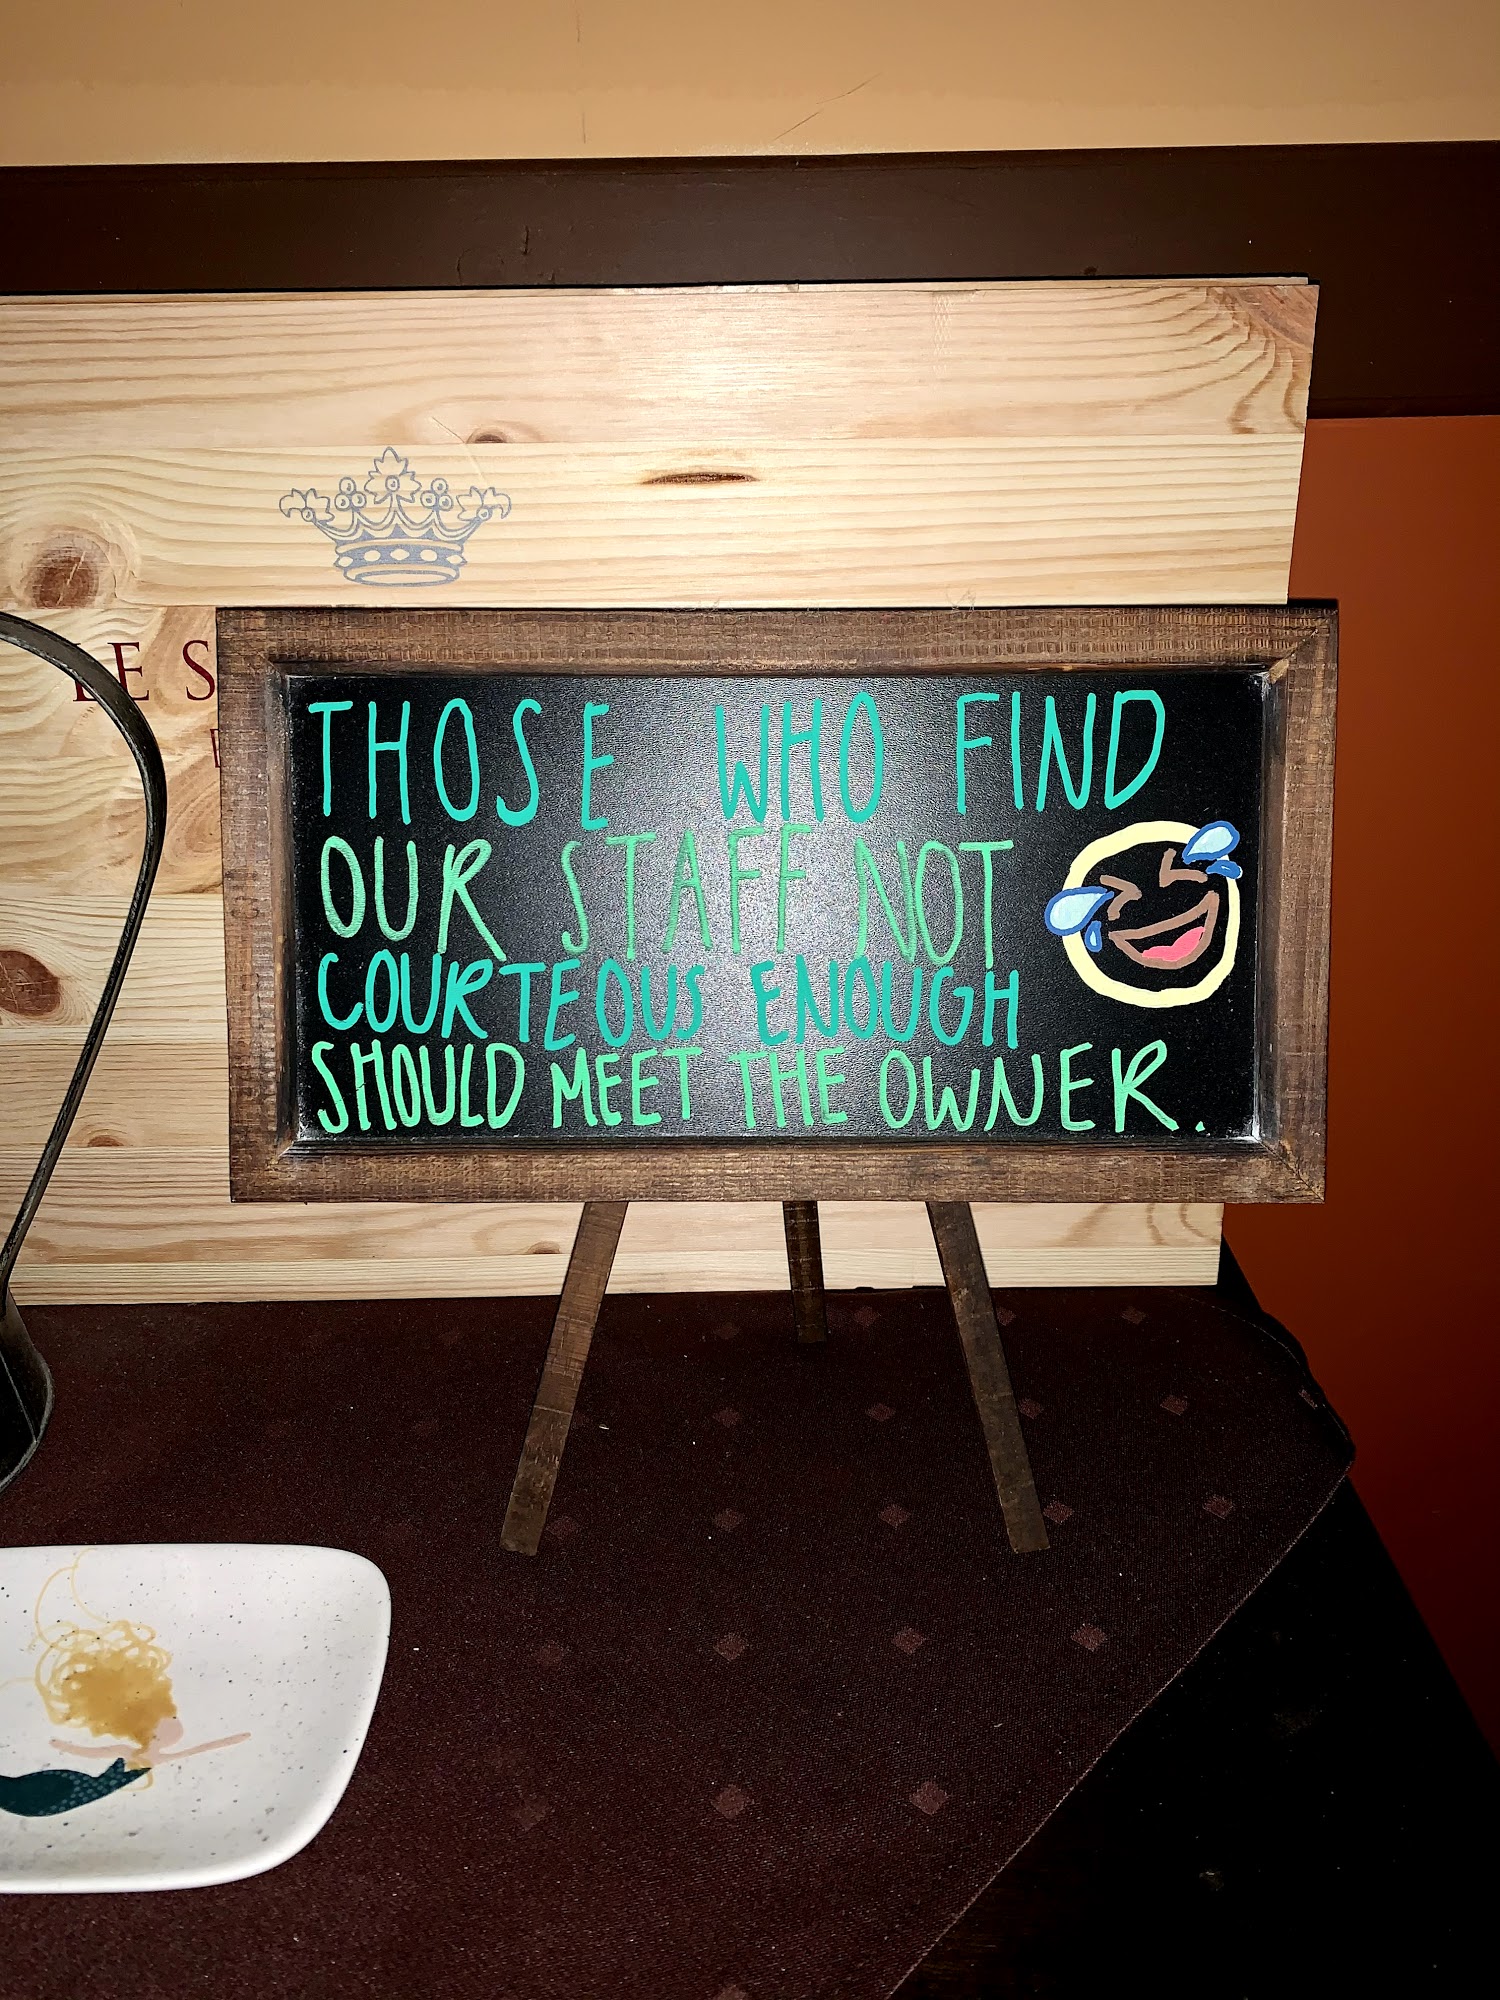 THOSE WHO FIND
OUR STAFF NOT
COURTEOUS ENOUGH
SHOULD MEET THE OWNER.